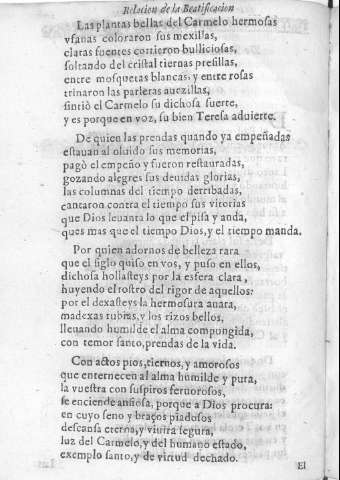 Relacion de la Beatificacion
Las plantas bellas del Carmelo hermosas
vfanas coloraron sus mexillas,
claras fuentes corrieron bulliciosas,
soltando del cristal tiernas presillas,
entre mosquetas blancas, y entre rosas
trinaron las parleras auezillas,
sintiò el Carmelo su dichosa suerte,
y es porque en voz, su bien Teresa aduierte.
De quien las prendas quando ya empeñadas
estauan al oluido sus memorias,
pagò el empeño y fueron restauradas,
gozando alegres sus deuidas glorias,
las columnas del tiempo derribadas,
cantaron contra el tiempo sus vitorias
que Dios leuanta lo que el pisa y anda,
ques mas que el tiempo Dios, y el tiempo manda.
Por quien adornos de belleza rara
que el siglo quiso en vos, y puso en ellos,
dichosa hollasteys por la esfera clara,
huyendo el rostro del rigor de aquellos:
por el dexasteys la hermosura auara,
madexas rubias, y los rizos bellos,
lleuando humilde el alma compungida,
con temor santo, prendas de la vida.
Con actos pios, tiernos, y amorosos
que enternecen al alma humilde y pura,
la vuestra con suspiros feruorosos,
se enciende ansiosa, porque a Dios procura:
en cuyo seno y braços piadosos
descansa eterna, y viuira segura,
luz del Carmelo, y del humano estado,
exemplo santo, y de virtud dechado.
El